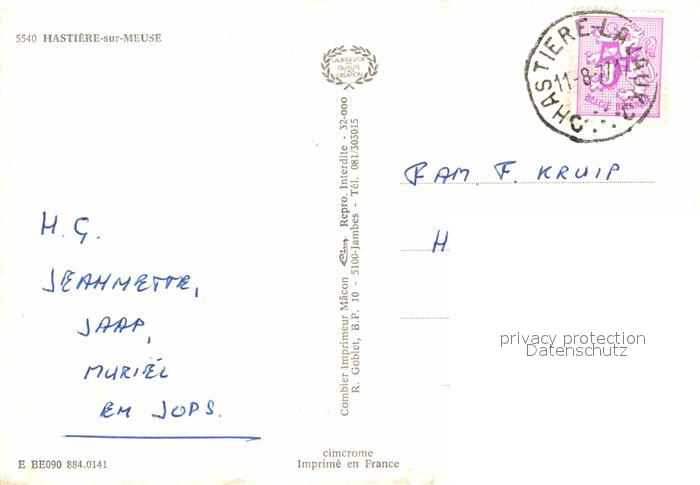 5540 HASTIÈRE-sur-MEUSE
LAURIER D'OR
DE QUALITÉ
CRÉATION
HASTIERE-LAVAUX
11-8-77 17
5
BELGIE BELGIQUE
FAM. F. KRUIP
H
H. G.
JEANNETTE,
JAAP,
MURIËL
EN JOPS.
Combier Imprimeur Mâcon Cim Repro. Interdite - 32-000
R. Goblet, B.P. 10 - 5100-Jambes - Tél. 081/303015
privacy protection
Datenschutz
E BE090 884.0141
cimcrome
Imprimé en France